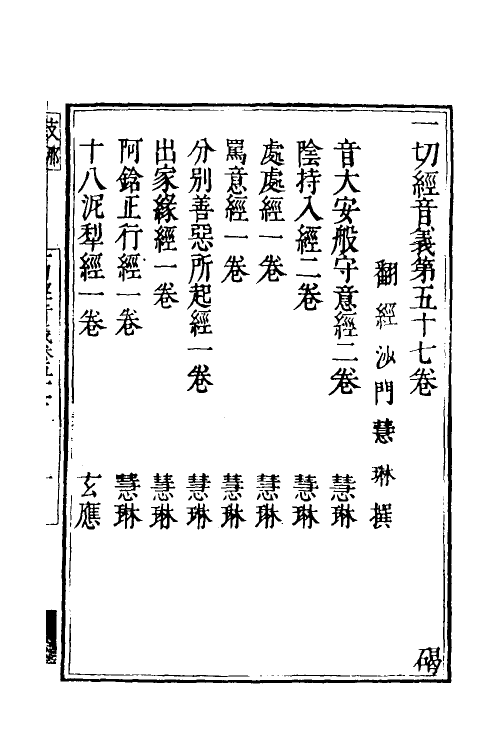 一切經音義第五十七卷 碣
翻經沙門慧琳撰
音大安般守意經二卷 慧琳
陰持入經二卷 慧琳
處處經一卷 慧琳
罵意經一卷 慧琳
分別善惡所起經一卷 慧琳
出家緣經一卷 慧琳
阿鋡正行經一卷 慧琳
十八泥犁經一卷 玄應